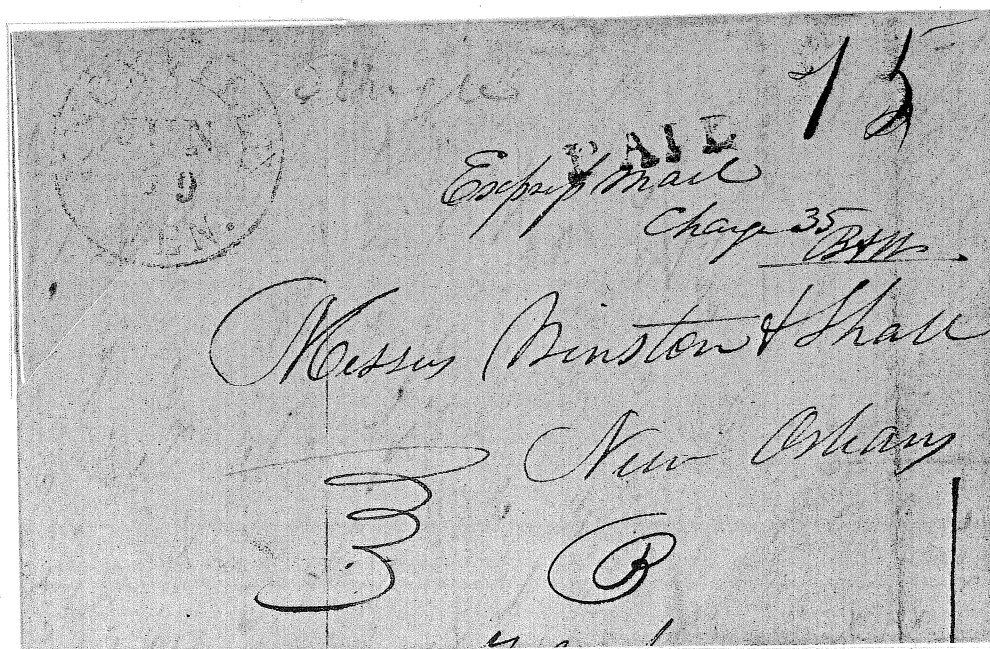 JUN
9
TEN.
Single
75
PAID
Express Mail
Charge 35
Messrs Winston & Shall
New Orleans